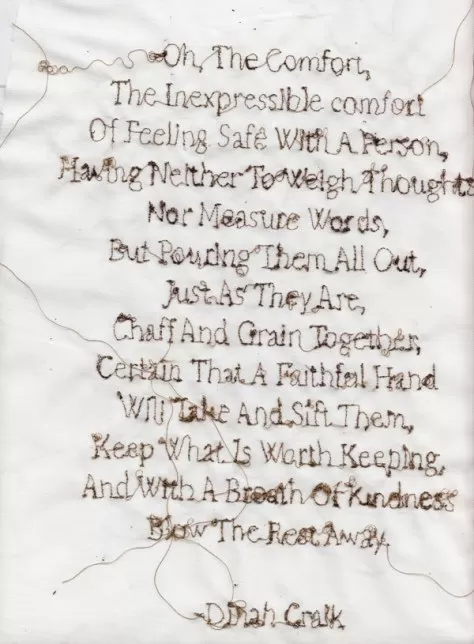 Oh, The Comfort,
The Inexpressible comfort
Of Feeling Safe With A Person,
Having Neither To Weigh Thoughts
Nor Measure Words,
But Pouring Them All Out,
Just As They Are,
Chaff And Grain Together,
Certain That A Faithful Hand
Will Take And Sift Them,
Keep What Is Worth Keeping,
And With A Breath Of Kindness
Blow The Rest Away.
-Dinah Craik